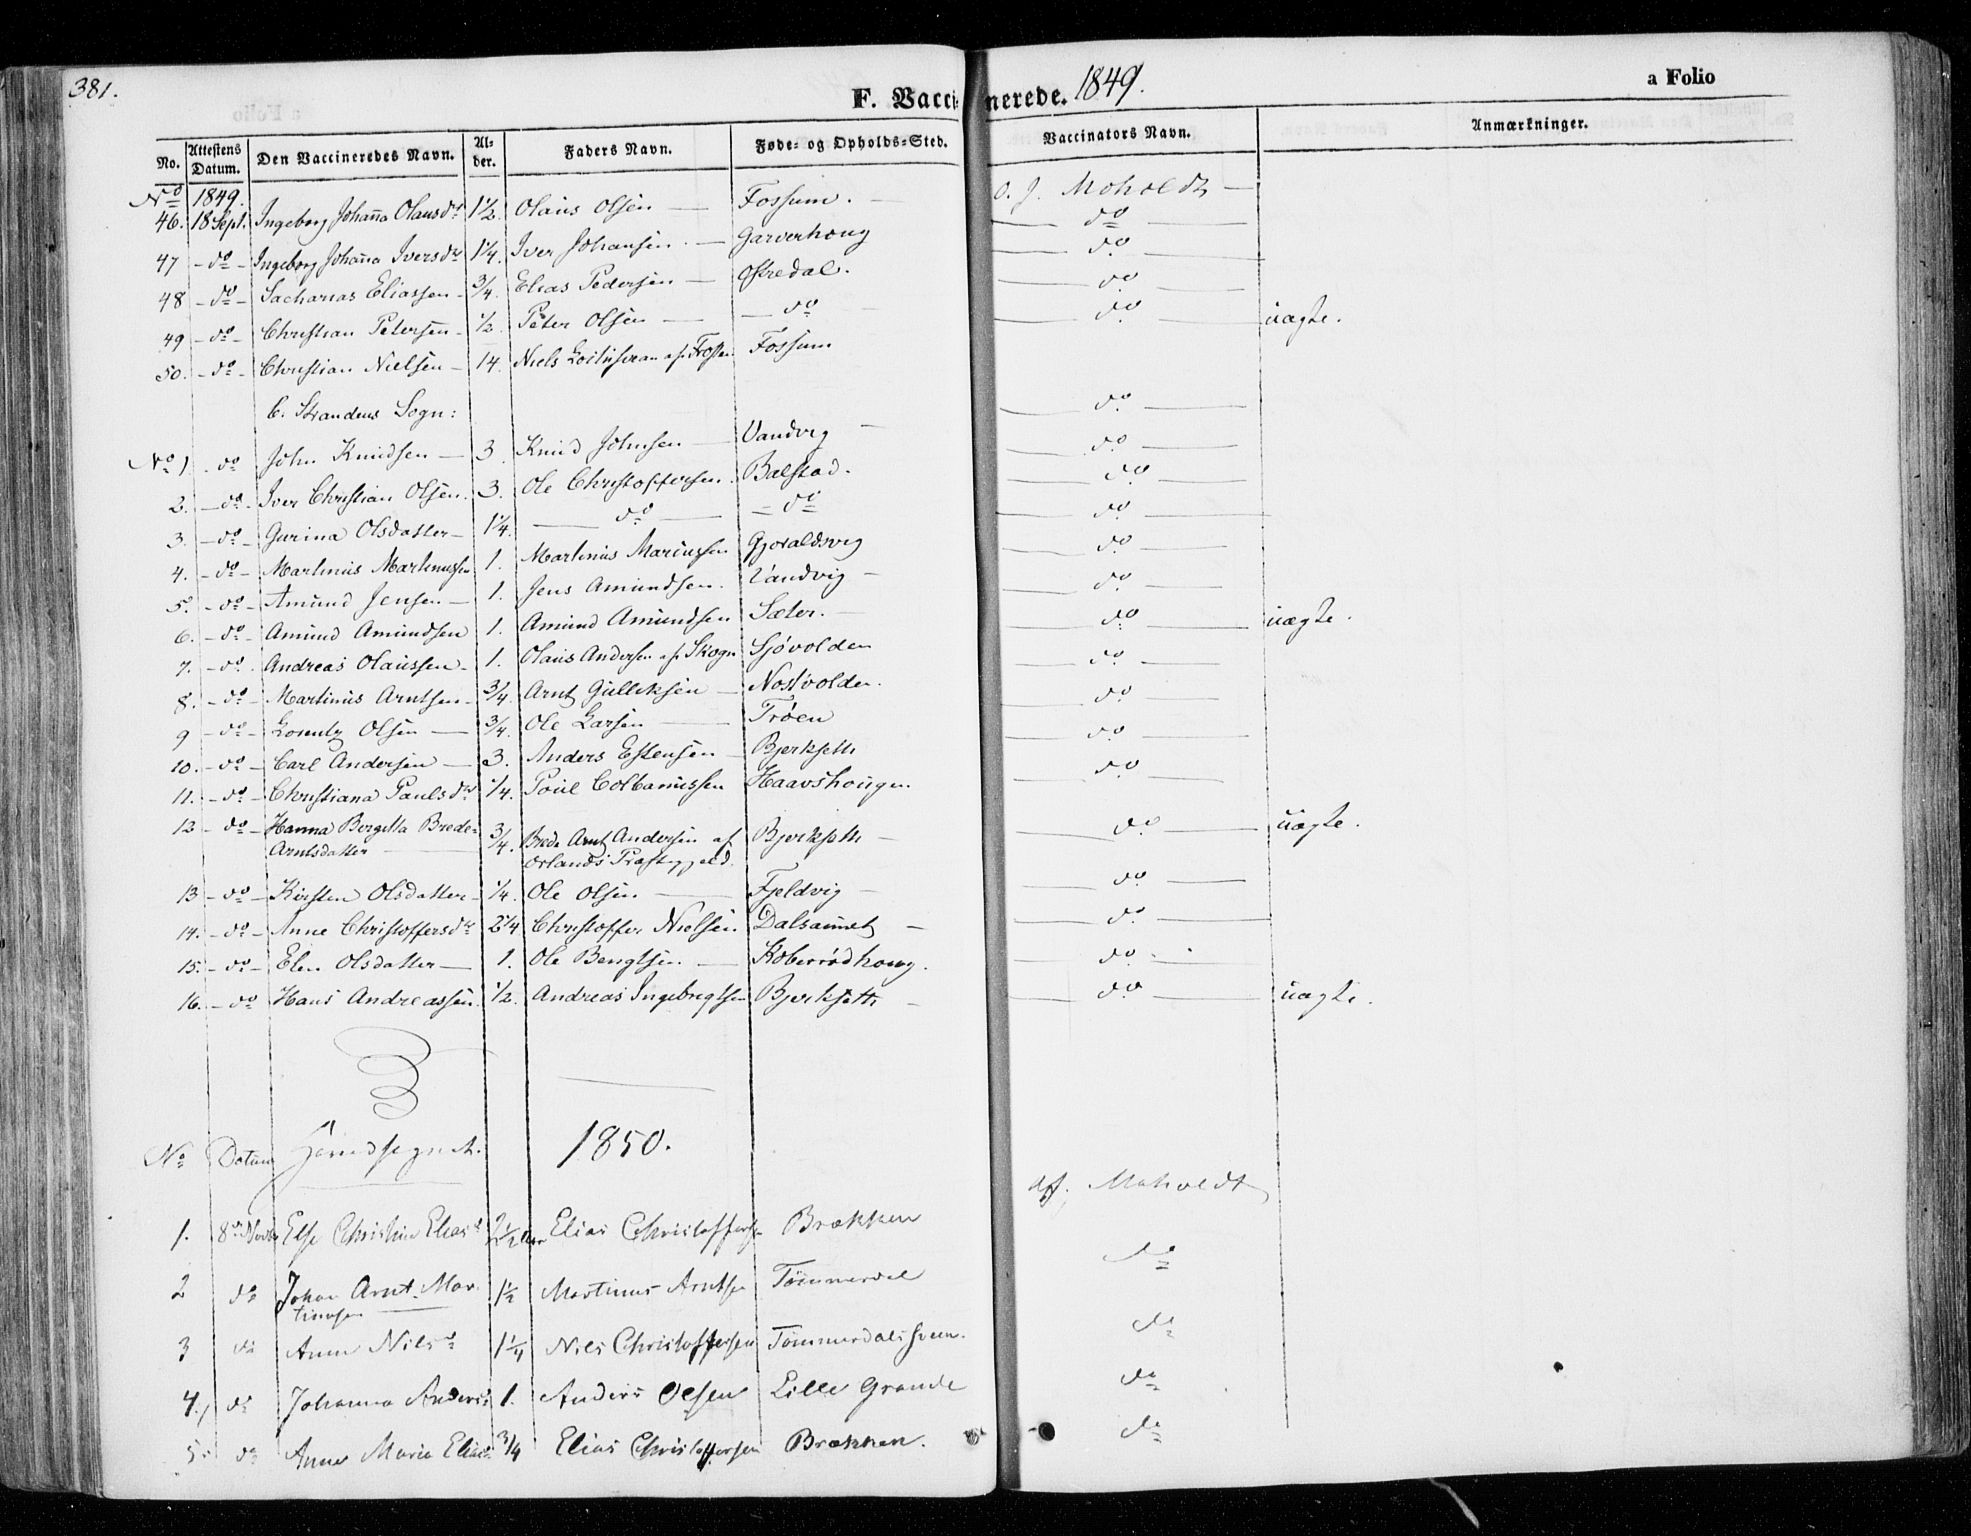 381.
F. Vaccinerede. 1849.
a Folio
No. Attestens Datum. Den Vaccineredes Navn. Al- der. Faders Navn. Føde- og Opholds-Sted. Vaccinators Navn. Anmærkninger.
No 1849.
46. 18 Sept. Ingeborg Johanna Olausdr 1½. Olaus Olsen — Fossum. — O. J. Moholdt —
47 - do - Ingeborg Johanna Iversdr 1¼. Iver Johansen. — Garverhoug — do —
48 - do - Sacharias Eliassen - ¾. Elias Pedersen — Øfredal. — do —
49 - do - Christian Petersen - ½. Peter Olsen — — do — — do —
50. - do - Christian Nielsen - 14. Niels af Frosten Fossum — do — uægte.
C. Strandens Sogn:
No 1 . do John Knudsen — 3. Knud Johnsen — Vandvig — — do —
2. - do - Iver Christian Olsen. 3. Ole Christoffersen. Balstad. — do —
3. - do - Gurina Olsdatter — 1¼. — do — - do — do —
4. - do - Martinus Martinussen 1. Martinus Mariussen Gjøraldsvig — do —
5. - do - Amund Jensen — 1. Jens Amundsen. Vandvig — — do —
6. - do - Amund Amundsen 1. Amund Amundsen Sæter. — — do —
7. - do . Andreas Olaussen - 1. Olaus Andersen af Skogn Sjøvolden — do — uægte.
8. - do - Martinus Arntsen - ¾. Arnt Gulliksen — Nostvolden. — do —
9 - do - Lorentz Olsen — ¾. Ole Larsen — Trøen — do —
10. - do - Carl Andersen — 3. Anders Estensen — Bjerkseth — do —
11. - do - Christiana Paulsdr ¼. Poul Colbanussen Haavshougen — do —
12 - do - Hanna Bergitta Brede- ¾. Brede Arnt Andersen af Bjerkseth — — do — uægte.
Arntsdatter — Ørlands Præstegjeld.
13 - do - Kirsten Olsdatter - ¼. Ole Olsen — Fjeldvig — — do —
14. - do - Anne Christoffersdr 2¼ Christoffer Nielsen. Dalsaunet — — do —
15. - do - Elen Olsdatter — 1. Ole Bengtsen — Koberrødhoug. — do -
16. - do - Hans Andreassen. ½. Andreas Ingebrigtsen Bjerkseth — — do — uægte.
No Datum 1850.
1. 8de Novbr Else Christine Eliasd 2½ Elias Christoffersen Brækken Moholdt
2 do Johan Arnt Mar- 1½ Martinus Arntsen Tømmerdal do
tinusen —
3 do Anne Nilsd 1¼ Nils Christoffersen Tømmerdals do
4. do Johanna Andersd 1. Anders Olsen Lille Grande do
5. do Anne Maria Eliasd ¾ Elias Christoffersen Brækken. do